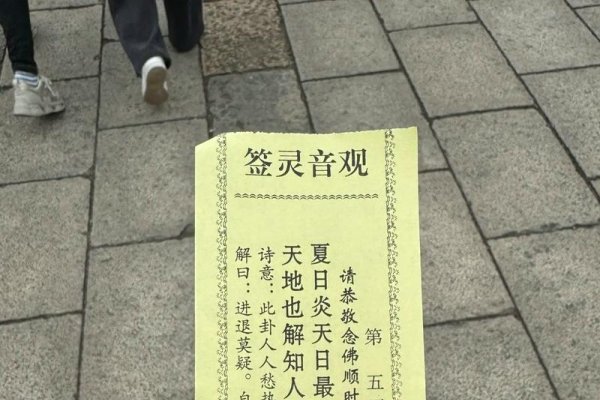 观音灵签
第五
请恭敬念佛顺时
夏日炎天日最
天地也解知人
诗意：此卦人人愁
解曰：进退莫疑。